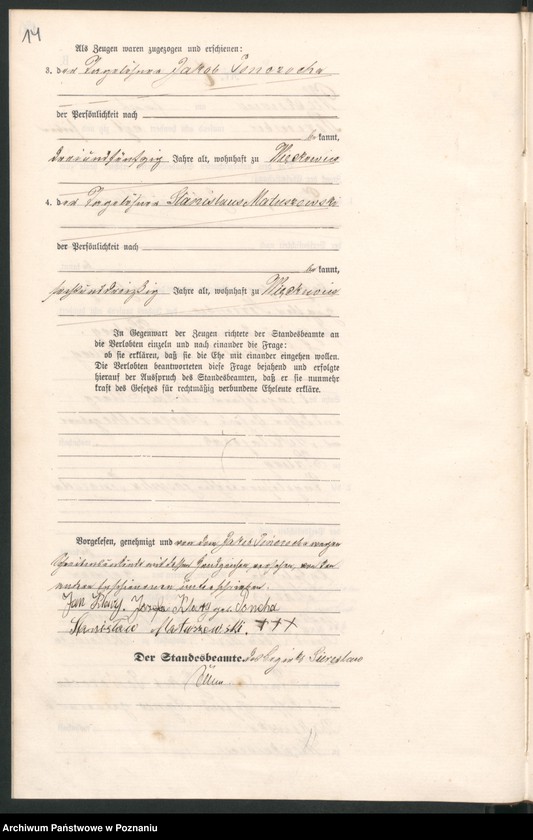 14
Als Zeugen waren zugezogen und erschienen:
3. der Tagelöhner Jakob
der Persönlichkeit nach
be kannt,
dreiundfünfzig Jahre alt, wohnhaft zu
4. der Tagelöhner Stanislaus Matuszewski
der Persönlichkeit nach
be kannt,
sechsunddreißig Jahre alt, wohnhaft zu
In Gegenwart der Zeugen richtete der Standesbeamte an
die Verlobten einzeln und nach einander die Frage:
ob sie erklären, daß sie die Ehe mit einander eingehen wollen.
Die Verlobten beantworteten diese Frage bejahend und erfolgte
hierauf der Ausspruch des Standesbeamten, daß er sie nunmehr
kraft des Gesetzes für rechtmäßig verbundene Eheleute erkläre.
Vorgelesen, genehmigt und von dem Jakob wegen
mit dessen Handzeichen versehen, von den
unterschrieben.
Jan geb.
Stanisław Matuszewski. +++
Der Standesbeamte.
Archiwum Państwowe w Poznaniu